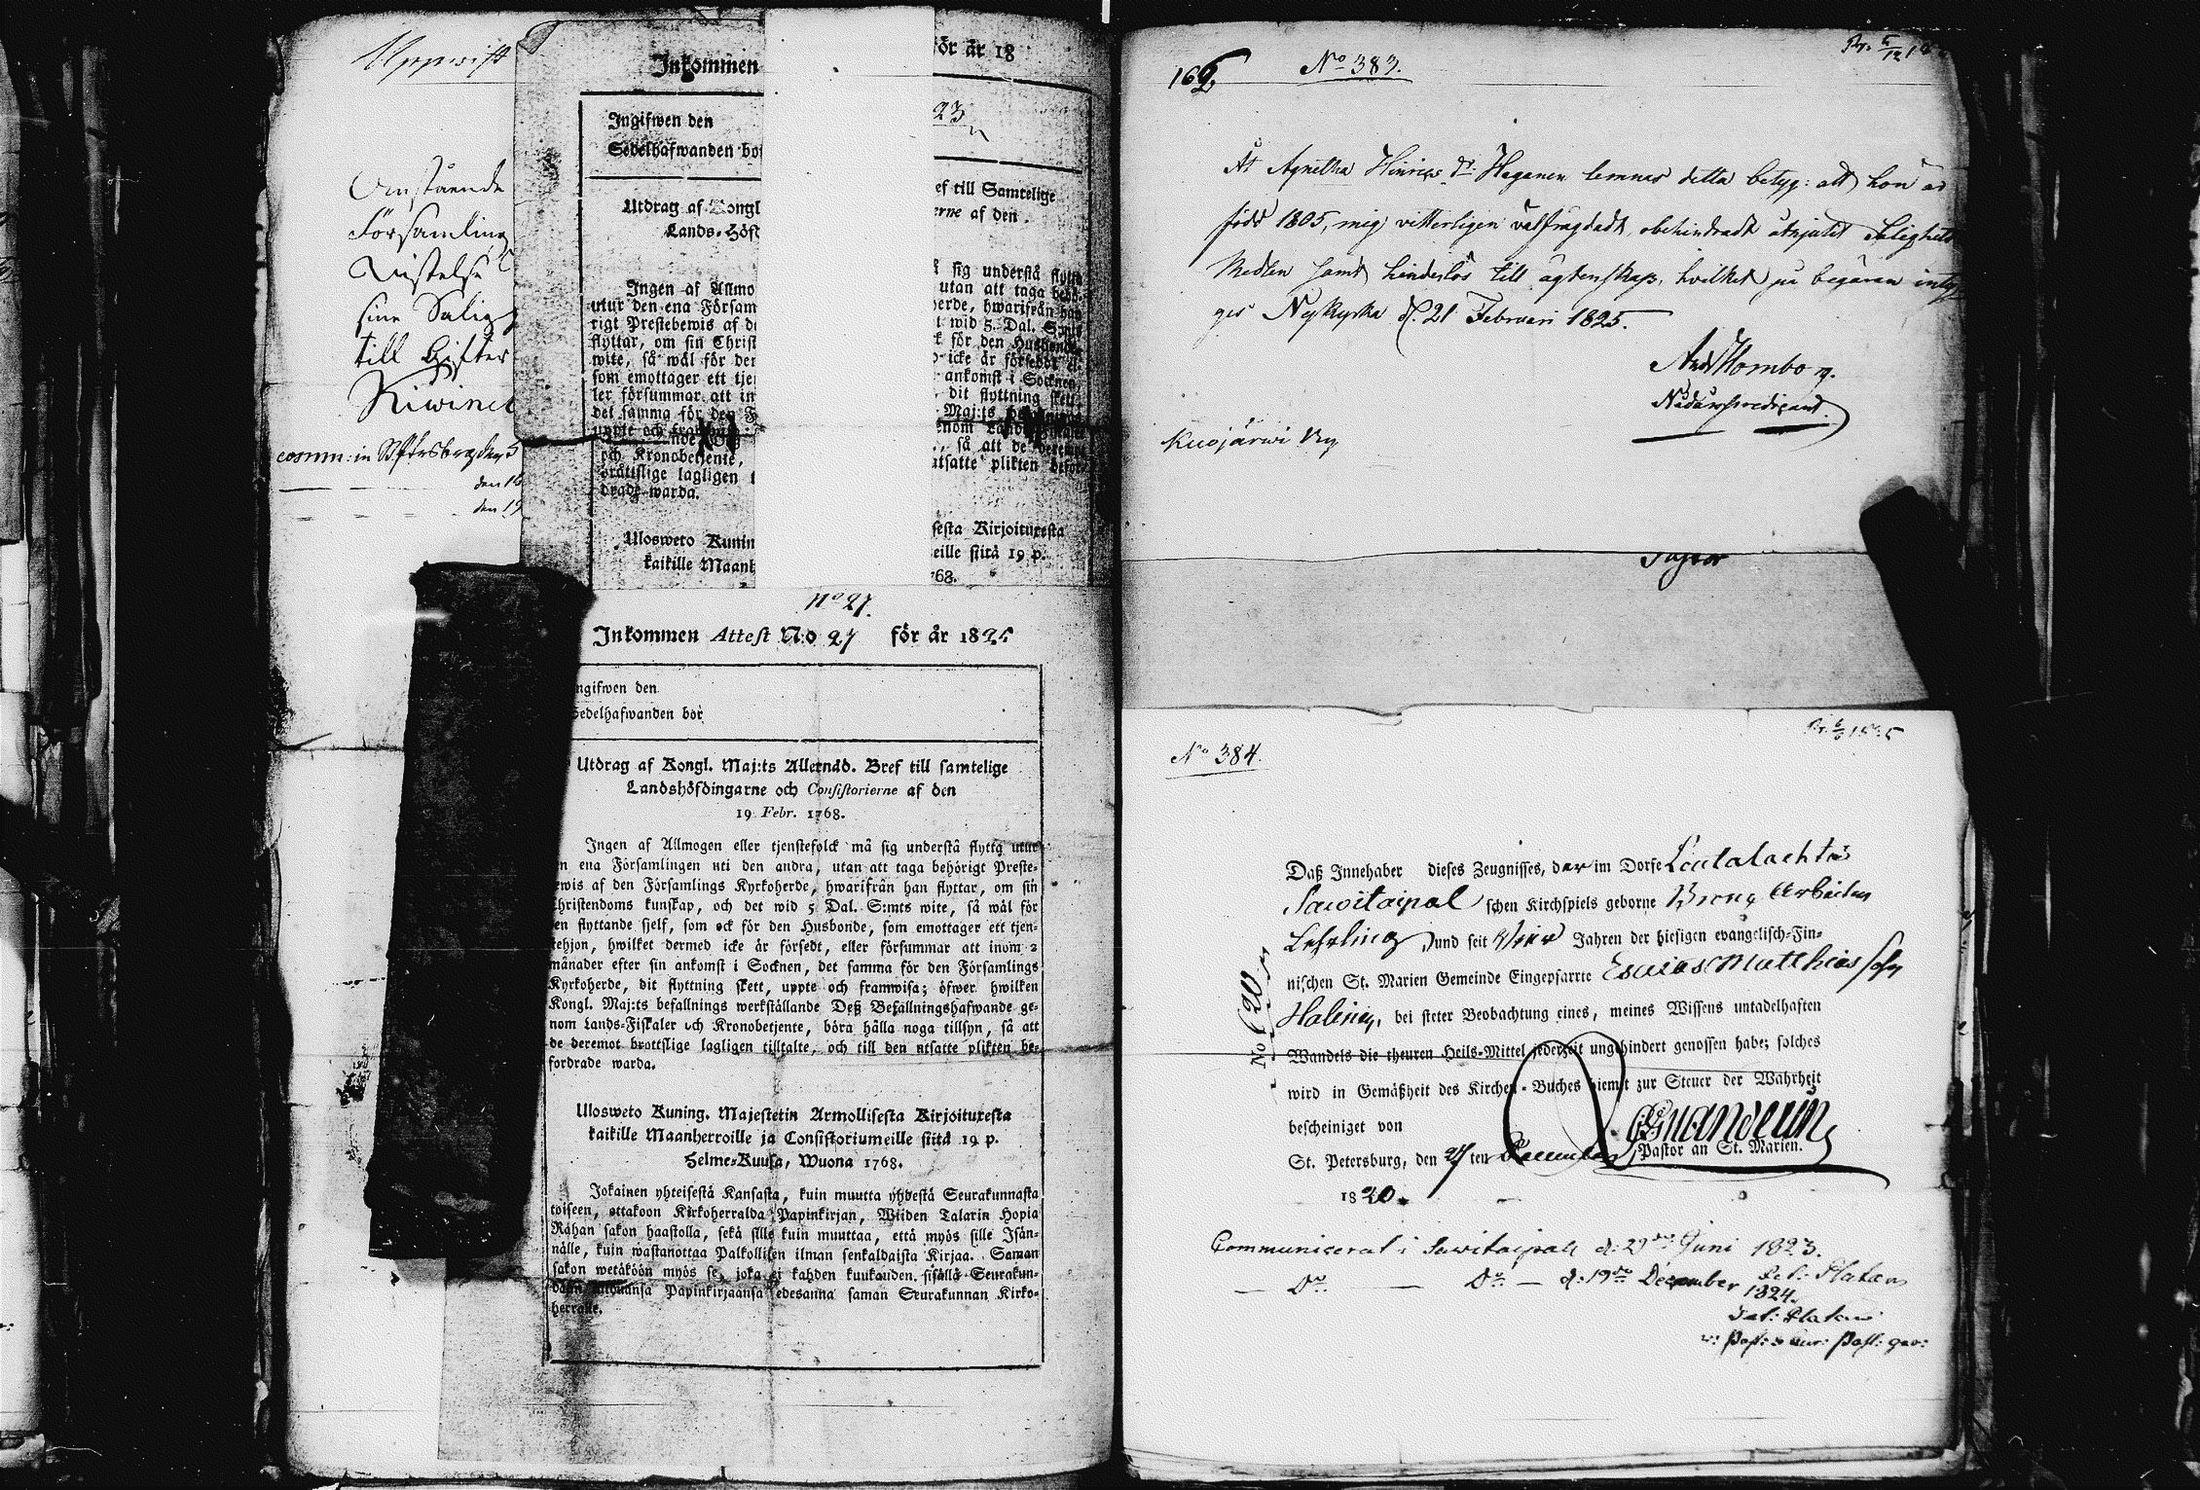 Uppvist
Omstående
Församling
Vistelse
sine Salig
till Gifter
Kiwineb
comm: in St Ptrsbrg den 5
den 16
den 19
Inkommen för år 18
Ingifwen den 23
Sedelhafwanden bo
Utdrag af Kongl ef till Samtelige
Lands-Höf erne af den
Ingen af Allmo sig understå flytta
utur den ena Försam utan att taga behö-
rigt Prestebewis af d erde, hwarifrån han
flyttar, om sin Christ t wid 5. Dal. S:mts
wite, så wäl för den k för den Husbonde
som emottager ett tje icke är försedt el-
ler försummar att in ankomst i Socknen,
det samma för den F dit flyttning skett,
uppte och framwisa: Maj:ts
nde enom Lands
och Kronobetjente, , så att de deremot
bråttslige lagligen utsatte plikten befor-
drade warda.
Ulosweto Kunin sesta Kirjoituresta
kaikille Maanh eille siitä 19 p.
768.
No 27.
Inkommen Attest N:o 27 för år 1825
ngifwen den
Sedelhafwanden bör
Utdrag af Kongl. Maj:ts Allernåd. Bref till samtelige
Landshöfdingarne och Consistorierne af den
19 Febr. 1768.
Ingen af Allmogen eller tjenstefolck må sig understå flytta utur
n ena Församlingen uti den andra, utan att taga behörigt Preste-
ewis af den Församlings Kyrkoherde, hwarifrån han flyttar, om sin
Christendoms kunskap, och det wid 5 Dal. S:mts wite, så wäl för
en flyttande sjelf, som ock för den Husbonde, som emottager ett tjen-
stehjon, hwilket dermed icke är försedt, eller försummar att inom 2
månader efter sin ankomst i Socknen, det samma för den Församlings
Kyrkoherde, dit flyttning skett, uppte och framwisa; öfwer hwilken
Kongl. Maj:ts befallnings werkställande Deß Befallningshafwande ge-
nom Lands-Fiskaler och Kronobetjente, böra hålla noga tillsyn, så att
de deremot brottslige lagligen tilltalte, och till den utsatte plikten be-
fordrade warda.
Ulosweto Kuning. Majestetin Armollisesta Kirjoituresta
kaikille Maanherroille ja Consistoriumeille siitä 19 p.
Helme-Kuusa, Wuona 1768.
Jokainen yhteisestä Kansasta, kuin muutta yhdestä Seurakunnasta
toiseen, ottakoon Kirkoherralda Papinkirjan, Wiiden Talarin Hopia
Rahan sakon haastolla, sekä sille kuin muuttaa, että myös sille Isän-
nälle, kuin wastanottaa Palkollisen ilman senkaldaista Kirjaa. Saman
sakon wetäköön myös se, joka ei kahden kuukauden sisällä Seurakun-
daan tuldua�loansa Papinkirjaansa edesanna saman Seurakunnan Kirko-
herralle.
162
No 383.
Åt Agnetha Hinrics Dr. Haganen lemnas detta betyg: att hon är
född 1805, mig vitterligen välfrägdadt, obehindradt åtnjutit Salighets
Medlen samt hinderlös till ägtenskap, hvilket på begäran inty-
ges Nykyrka d. 21 Februari 1825.
And Homborg.
Nådårspredikant.
Kuojärwi By
Pastor
No 384.
Daß Innehaber dieses Zeugnisses, der im Dorfe Loutalachta
Sawitaipal schen Kirchspiels geborne Bronz Arbeiter
Lehrling, und seit vier Jahren der hiesigen evangelisch-Fin-
nischen St. Marien Gemeinde Eingepfarrte Esaias Matthias sohn
Halin, bei steter Beobachtung eines, meines Wissens untadelhaften
Wandels die theuren Heils-Mittel jederzeit ungehindert genossen habe; solches
wird in Gemäßheit des Kirchen-Buches hiemit zur Steuer der Wahrheit
bescheiniget von
St. Petersburg, den 27 ten December Pastor an St. Marien.
1820.
No 620
Communicerat i Sawitaipale d: 29de Juni 1823.
Do — Do — d: 19de December Pet: Platan
1824.
Pet: Platan